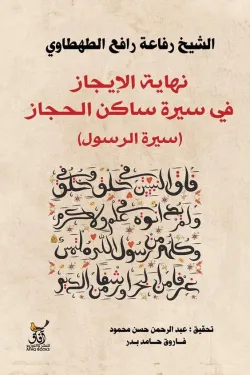 الشيخ رفاعة رافع الطهطاوي
نهاية الإيجاز
في سيرة ساكن الحجاز
(سيرة الرسول)
فاق النبيين في خلق وفي خلق
ولم يدانوه في علم ولا كرم
وكلهم من رسول الله ملتمس
غرفا من البحر أو رشفا من الديم
تحقيق : عبد الرحمن حسن محمود
فاروق حامد بدر
آفاق